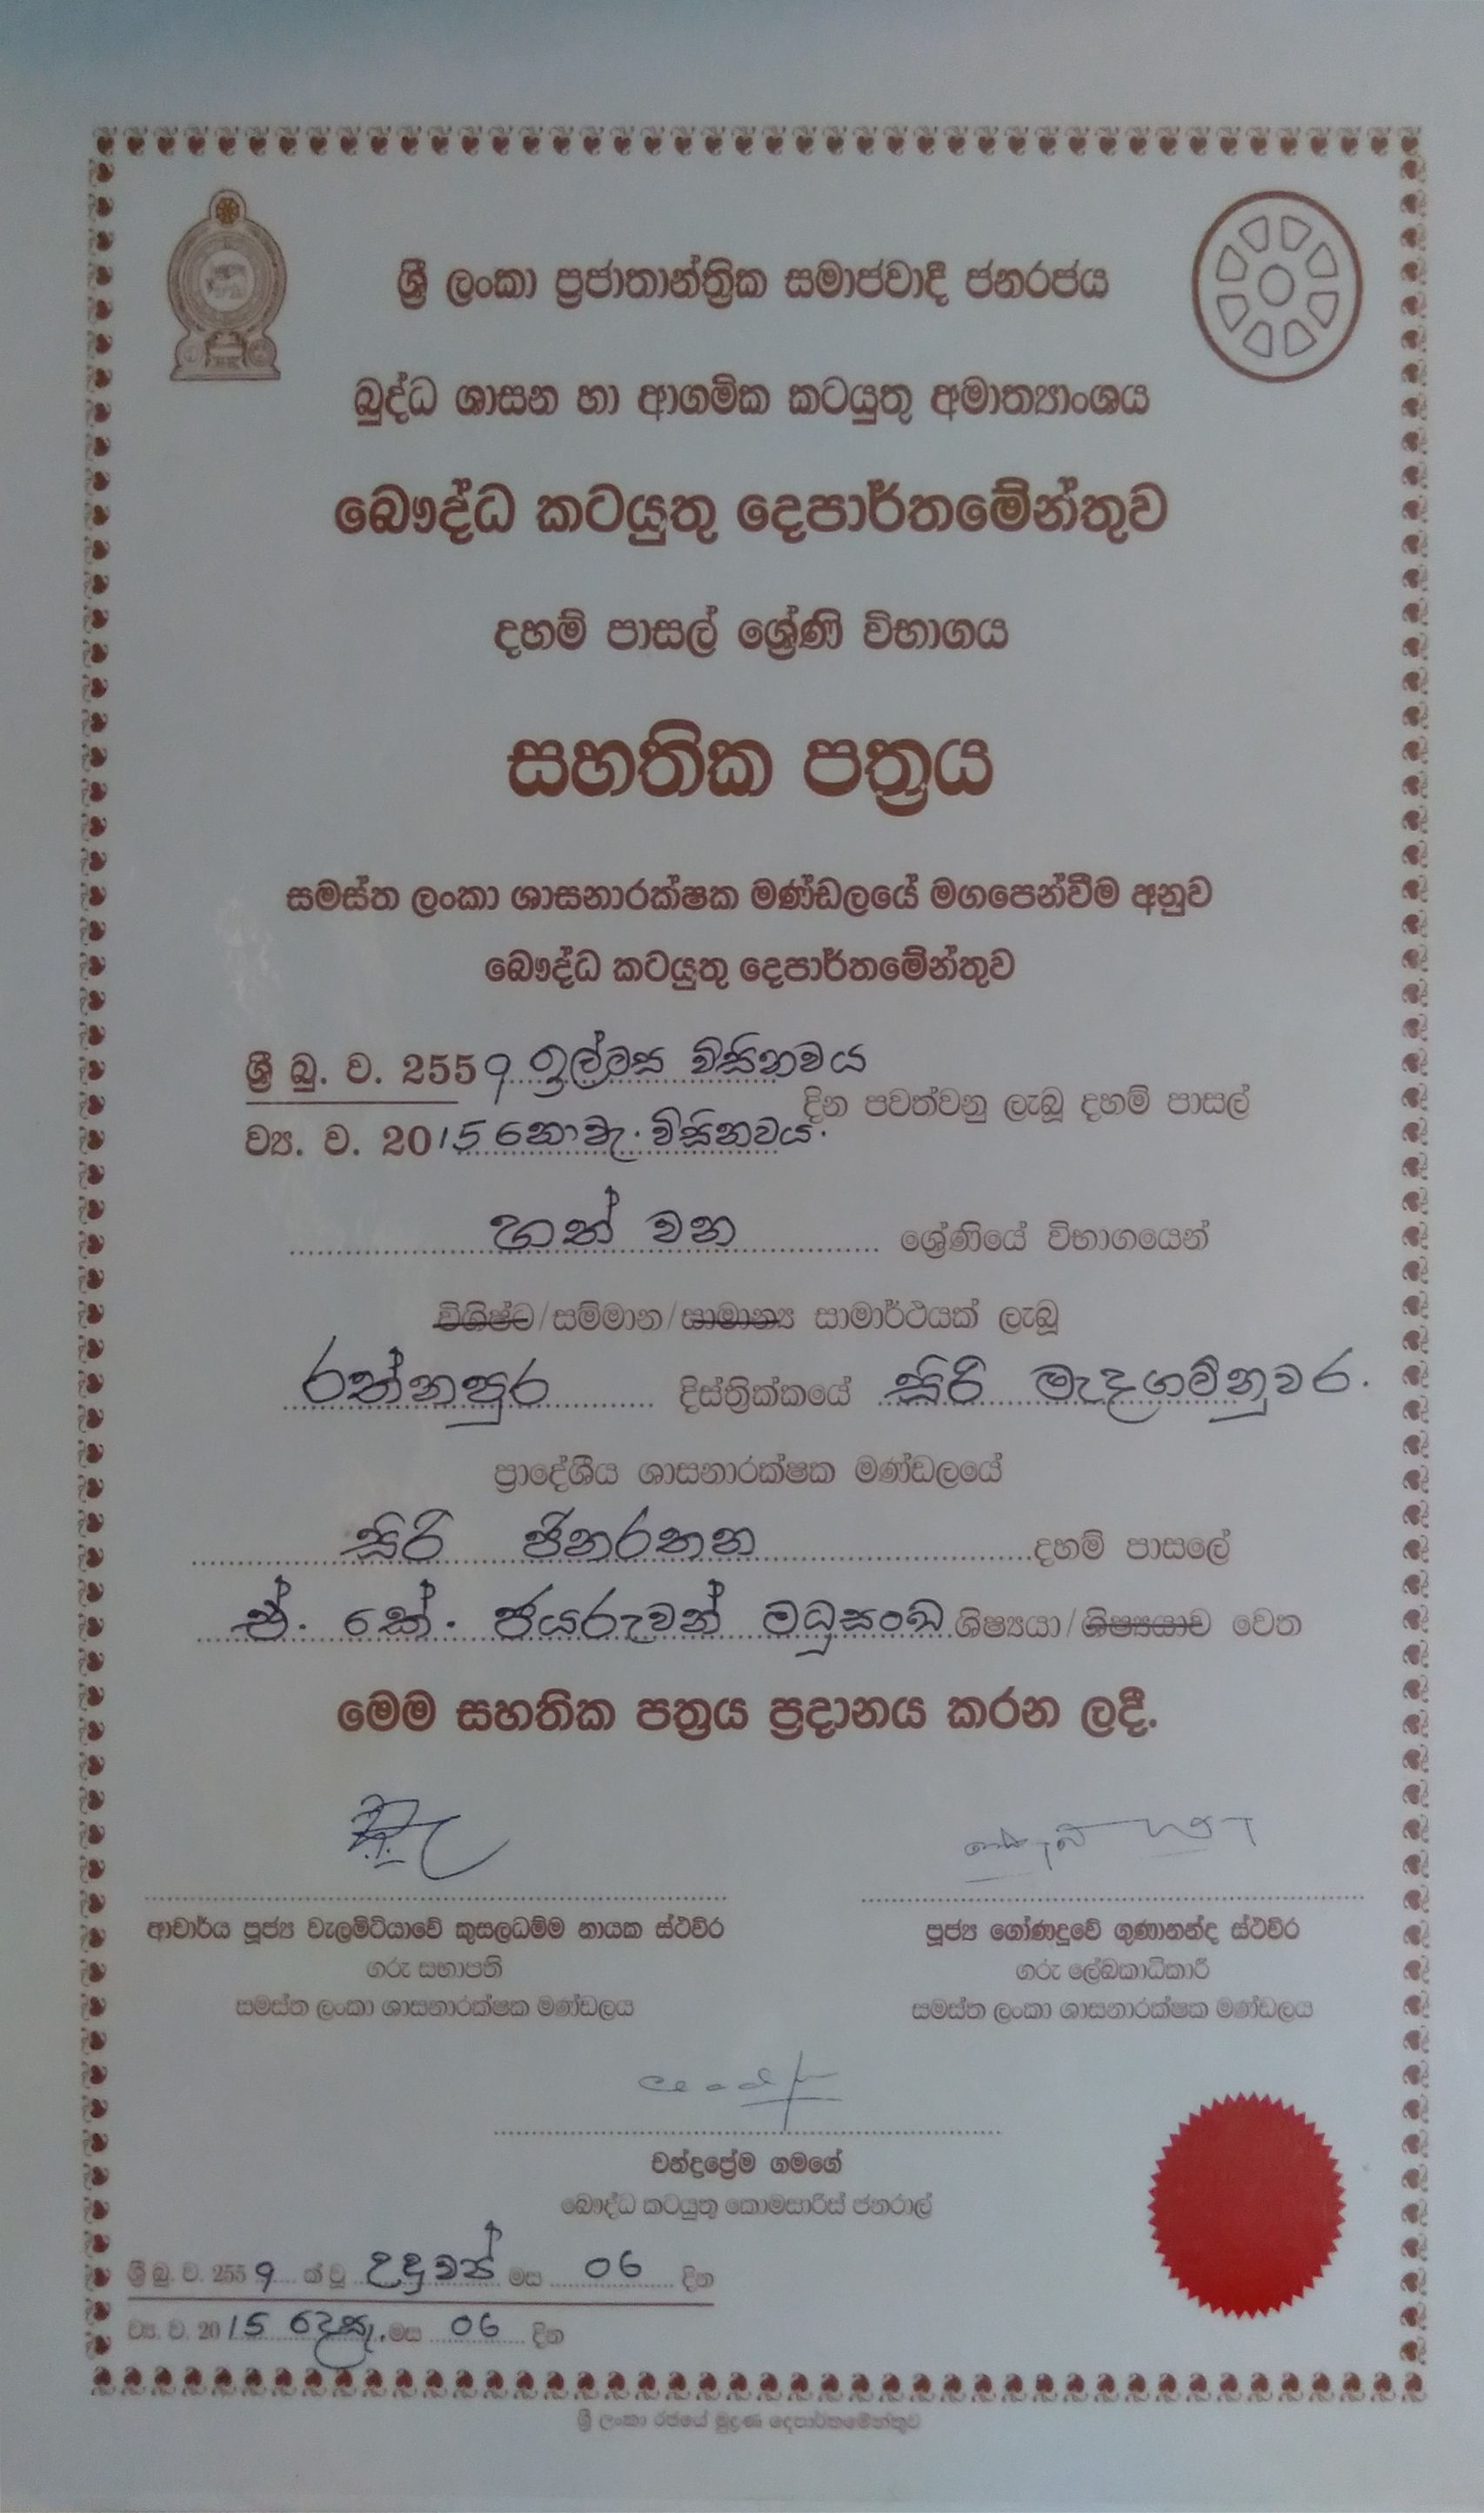 ශ්‍රී ලංකා ප්‍රජාතාන්ත්‍රික සමාජවාදී ජනරජය
බුද්ධ ශාසන හා ආගමික කටයුතු අමාත්‍යාංශය
බෞද්ධ කටයුතු දෙපාර්තමේන්තුව
දහම් පාසල් ශ්‍රේණි විභාගය
සහතික පත්‍රය
සමස්ත ලංකා ශාසනාරක්ෂක මණ්ඩලයේ මගපෙන්වීම අනුව
බෞද්ධ කටයුතු දෙපාර්තමේන්තුව
ශ්‍රී බු. ව. 2559 ඉල්මස විසිනවය
දින පවත්වනු ලැබූ දහම් පාසල්
ව්‍ය. ව. 2015 නොවැ. විසිනවය.
හත් වන ශ්‍රේණියේ විභාගයෙන්
විශිෂ්ට/සම්මාන/සාමාන්‍ය සාමාර්ථයක් ලැබූ
රත්නපුර දිස්ත්‍රික්කයේ සිරි මැදගම්නුවර.
ප්‍රාදේශීය ශාසනාරක්ෂක මණ්ඩලයේ
සිරි ජිනරතන දහම් පාසලේ
ඒ. කේ. ජයරුවන් මධුසංඛ ශිෂ්‍යයා/ශිෂ්‍යයාව වෙත
මෙම සහතික පත්‍රය ප්‍රදානය කරන ලදී.
ආචාර්ය පූජ්‍ය වැලමිටියාවේ කුසලධම්ම නායක ස්ථවිර
ගරු සභාපති
සමස්ත ලංකා ශාසනාරක්ෂක මණ්ඩලය
පූජ්‍ය ගෝණදූවේ ගුණානන්ද ස්ථවිර
ගරු ලේඛකාධිකාරී
සමස්ත ලංකා ශාසනාරක්ෂක මණ්ඩලය
චන්ද්‍රප්‍රේම ගමගේ
බෞද්ධ කටයුතු කොමසාරිස් ජනරාල්
ශ්‍රී බු. ව. 2559 ක් වූ උඳුවප් මස 06 දින
ව්‍ය. ව. 2015 දෙසැ. මස 06 දින
ශ්‍රී ලංකා රජයේ මුද්‍රණ දෙපාර්තමේන්තුව